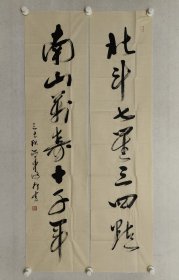 北斗七星三四点
南山万寿十千年